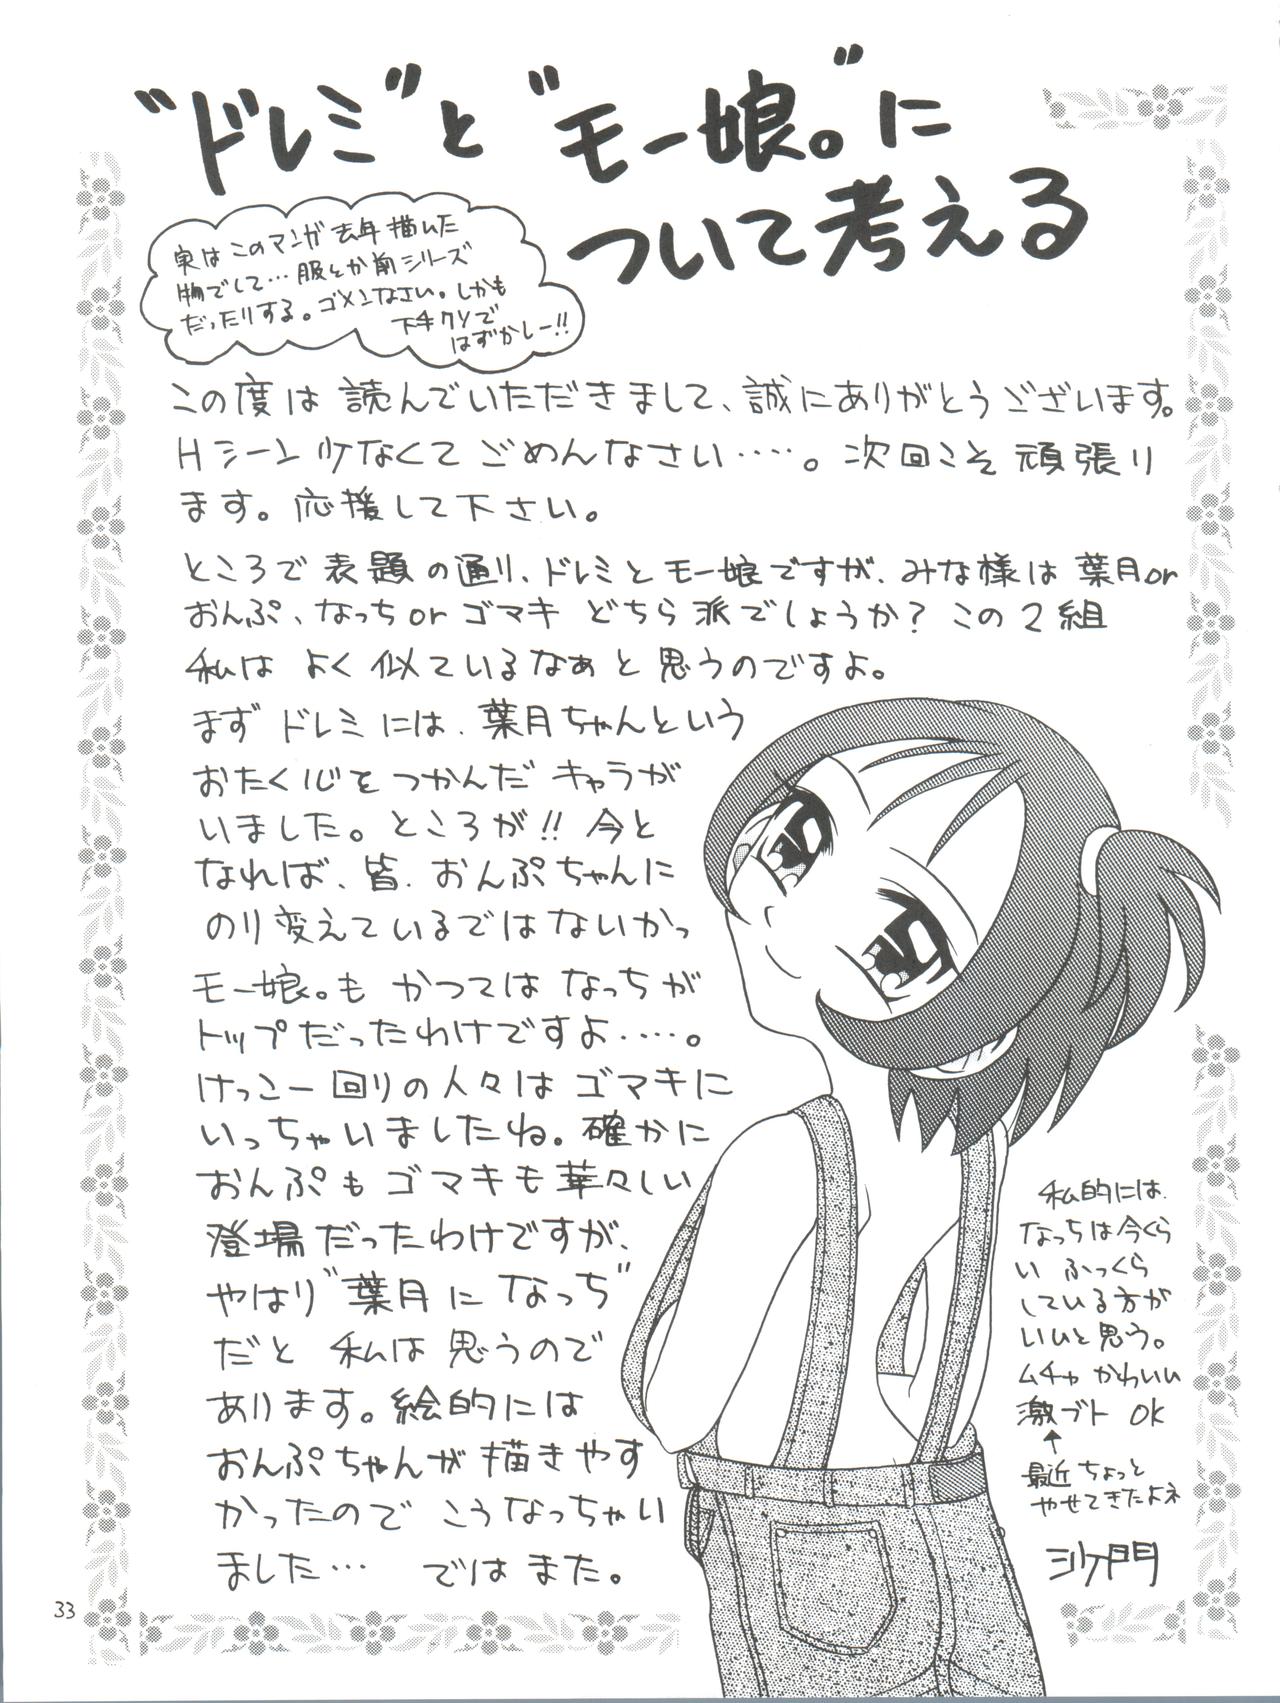 "ドレミ"と"モー娘。"に
ついて考える
実はこのマンガ去年描いた
物でして…服とか前シリーズ
だったりする。ゴメンなさい。しかも
下手クソで
はずかしー!!
この度は読んでいただきまして、誠にありがとうございます。
Hシーン少なくてごめんなさい……。次回こそ頑張り
ます。応援して下さい。
ところで表題の通り、ドレミとモー娘ですが、みな様は葉月or
おんぷ、なっちorゴマキどちら派でしょうか?この2組
私はよく似ているなぁと思うのですよ。
まずドレミには、葉月ちゃんという
おたく心をつかんだキャラが
いました。ところが!!今と
なれば、皆、おんぷちゃんに
のり変えているではないかっ
モー娘。もかつてはなっちが
トップだったわけですよ……。
けっこー回りの人々はゴマキに
いっちゃいましたね。確かに
おんぷもゴマキも華々しい
登場だったわけですが、
やはり"葉月になっち"
だと私は思うので
あります。絵的には
おんぷちゃんが描きやす
かったのでこうなっちゃい
ました… ではまた。
私的には、
なっちは今くら
いふっくら
している方が
いいと思う。
ムチャかわいい
激ブトOK
↑
最近ちょっと
やせてきたよネ
沙门
33